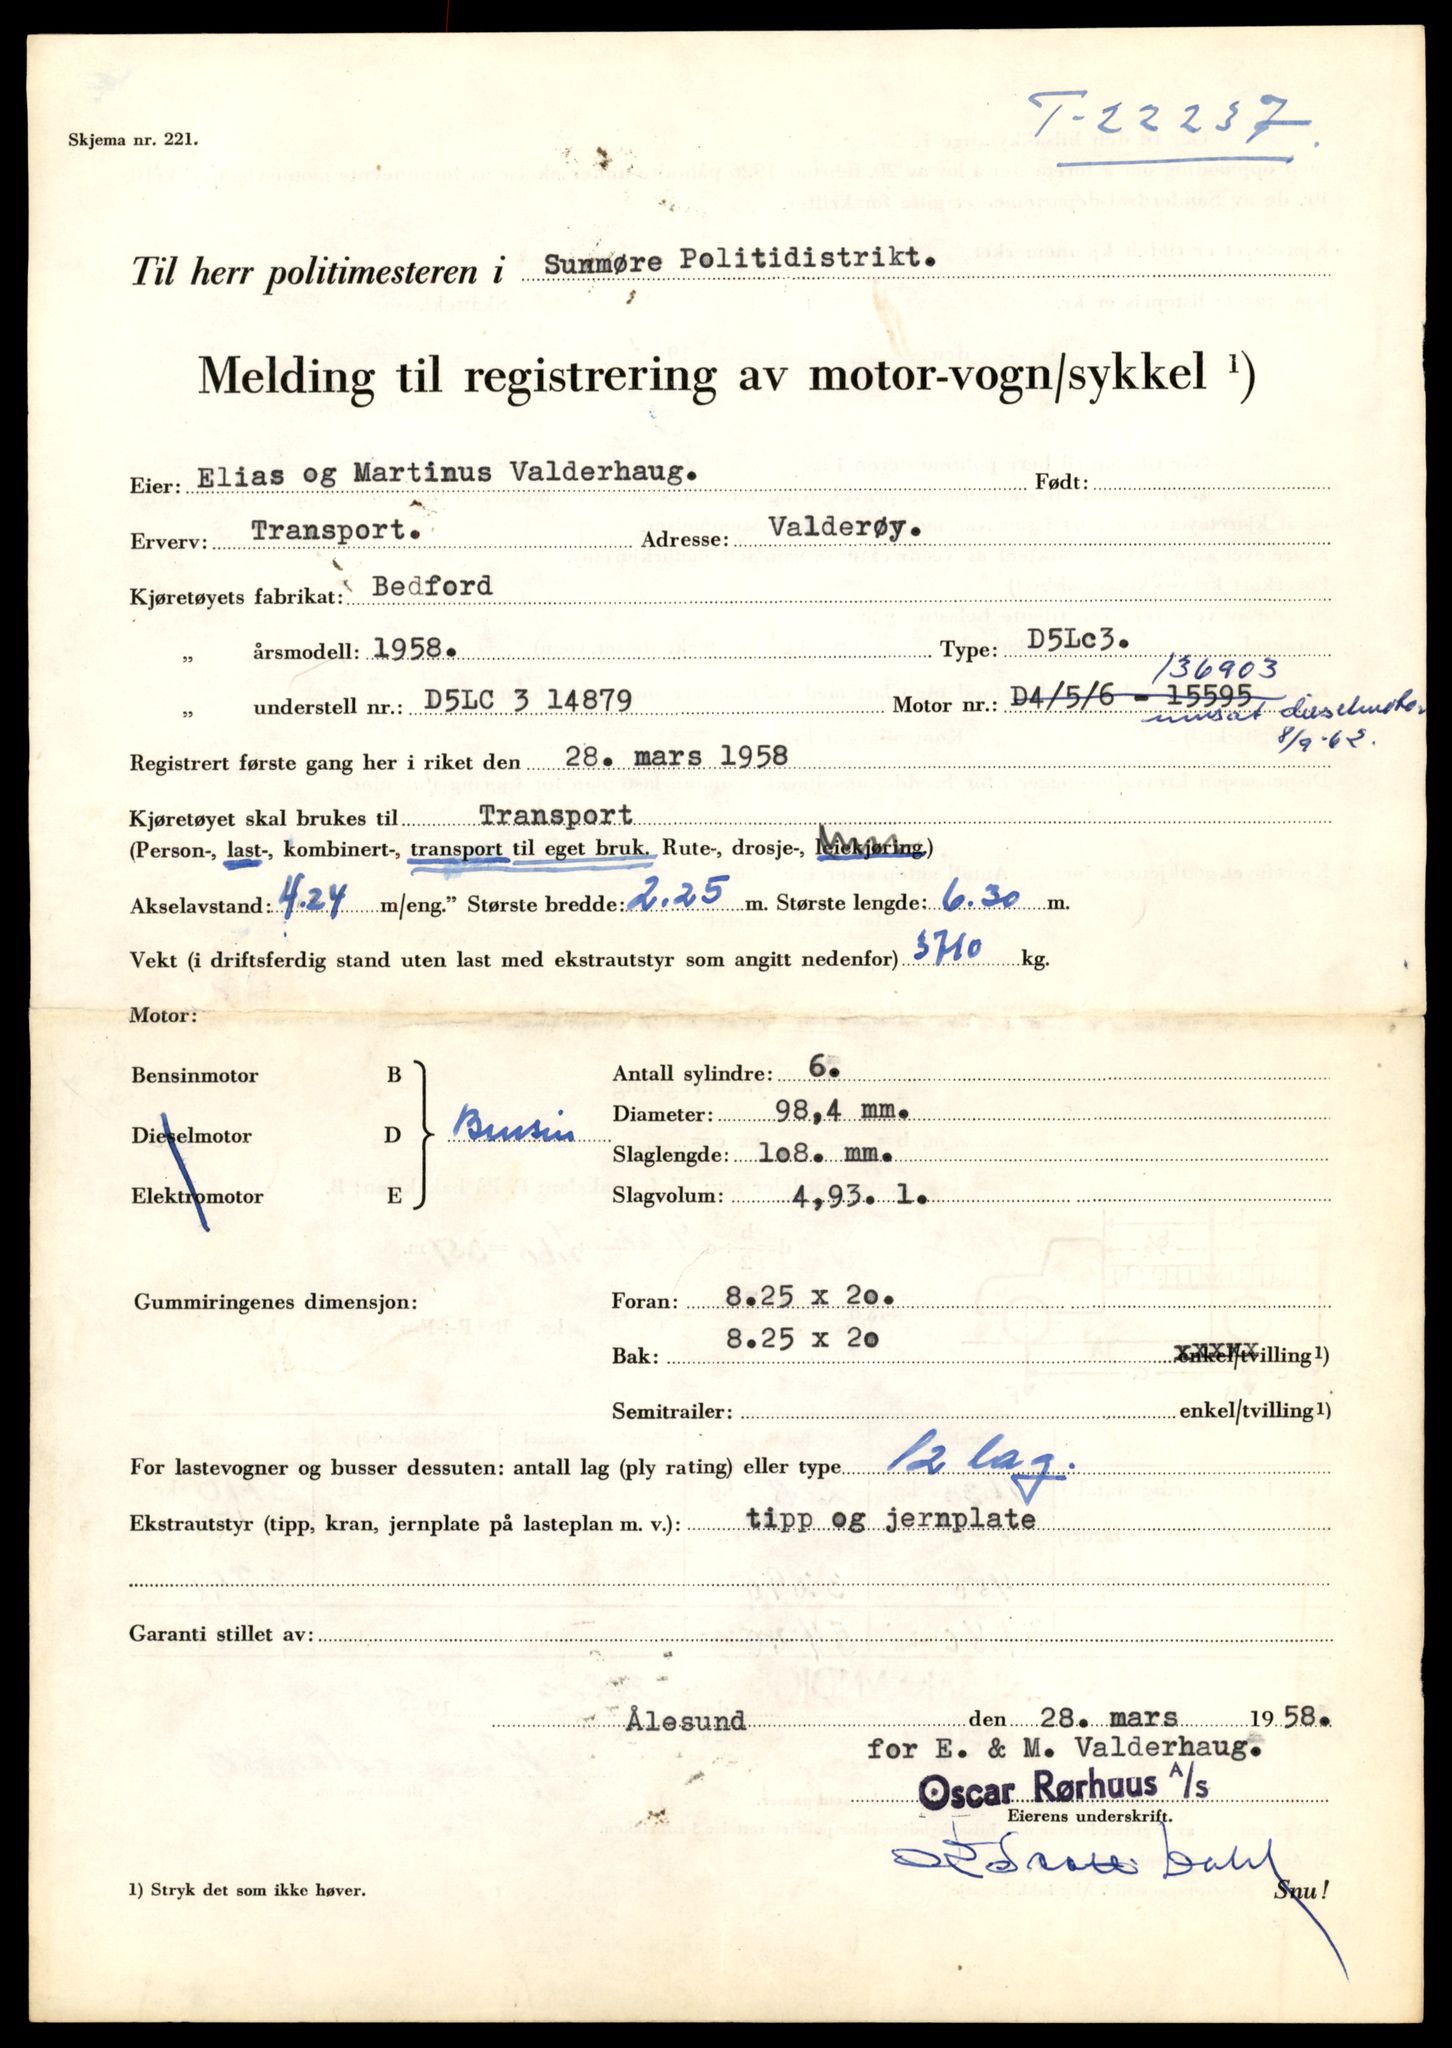 T-22237.
Skjema nr. 221.
Til herr politimesteren i Sunmøre Politidistrikt.
Melding til registrering av motor-vogn/sykkel 1)
Eier: Elias og Martinus Valderhaug. Født:
Erverv: Transport. Adresse: Valderøy.
Kjøretøyets fabrikat: Bedford
„ årsmodell: 1958. Type: D5Lc3.
136903
„ understell nr.: D5LC 3 14879 Motor nr.: D4/5/6 - 15595
innsat dieselmotor
8/9-62.
Registrert første gang her i riket den 28. mars 1958
Kjøretøyet skal brukes til Transport
(Person-, last-, kombinert-, transport til eget bruk. Rute-, drosje-, leiekjøring.)
Akselavstand: 4.24 m/eng.” Største bredde: 2.25 m. Største lengde: 6.30 m.
Vekt (i driftsferdig stand uten last med ekstrautstyr som angitt nedenfor) 3710 kg.
Motor:
Bensinmotor B Antall sylindre: 6.
Diameter: 98,4 mm.
Dieselmotor D Bensin
Slaglengde: 1o8. mm.
Elektromotor E Slagvolum: 4,93. l.
Gummiringenes dimensjon: Foran: 8.25 x 2o.
Bak: 8.25 x 2o enkel/tvilling1)
Semitrailer: enkel/tvilling1)
For lastevogner og busser dessuten: antall lag (ply rating) eller type 12 lag.
Ekstrautstyr (tipp, kran, jernplate på lasteplan m. v.): tipp og jernplate
Garanti stillet av:
Ålesund den 28. mars 1958.
for E. & M. Valderhaug.
Oscar Rørhuus A/s
Eierens underskrift.
1) Stryk det som ikke høver. Snu!